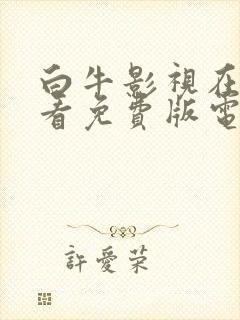 白牛影視在
看免費版電
許愛榮